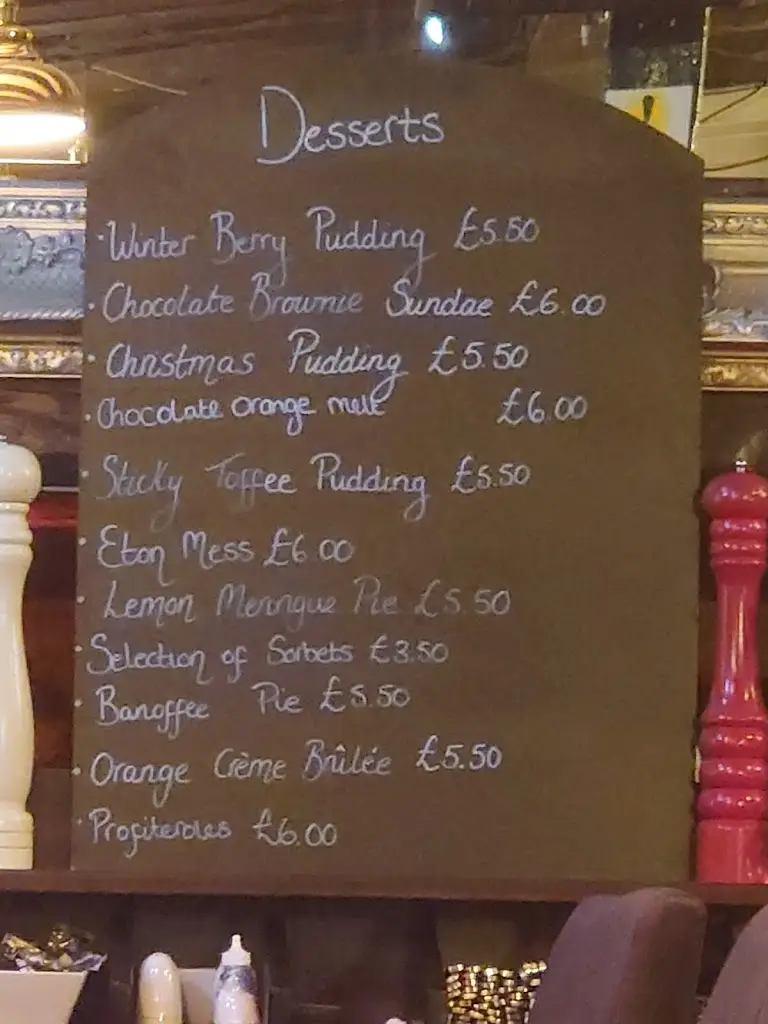 Desserts
· Winter Berry Pudding £5.50
· Chocolate Brownie Sundae £6.00
· Christmas Pudding £5.50
· Chocolate orange melt £6.00
· Sticky Toffee Pudding £5.50
· Eton Mess £6.00
· Lemon Meringue Pie £5.50
· Selection of Sorbets £3.50
· Banoffee Pie £5.50
· Orange Crème Brûlée £5.50
· Profiteroles £6.00